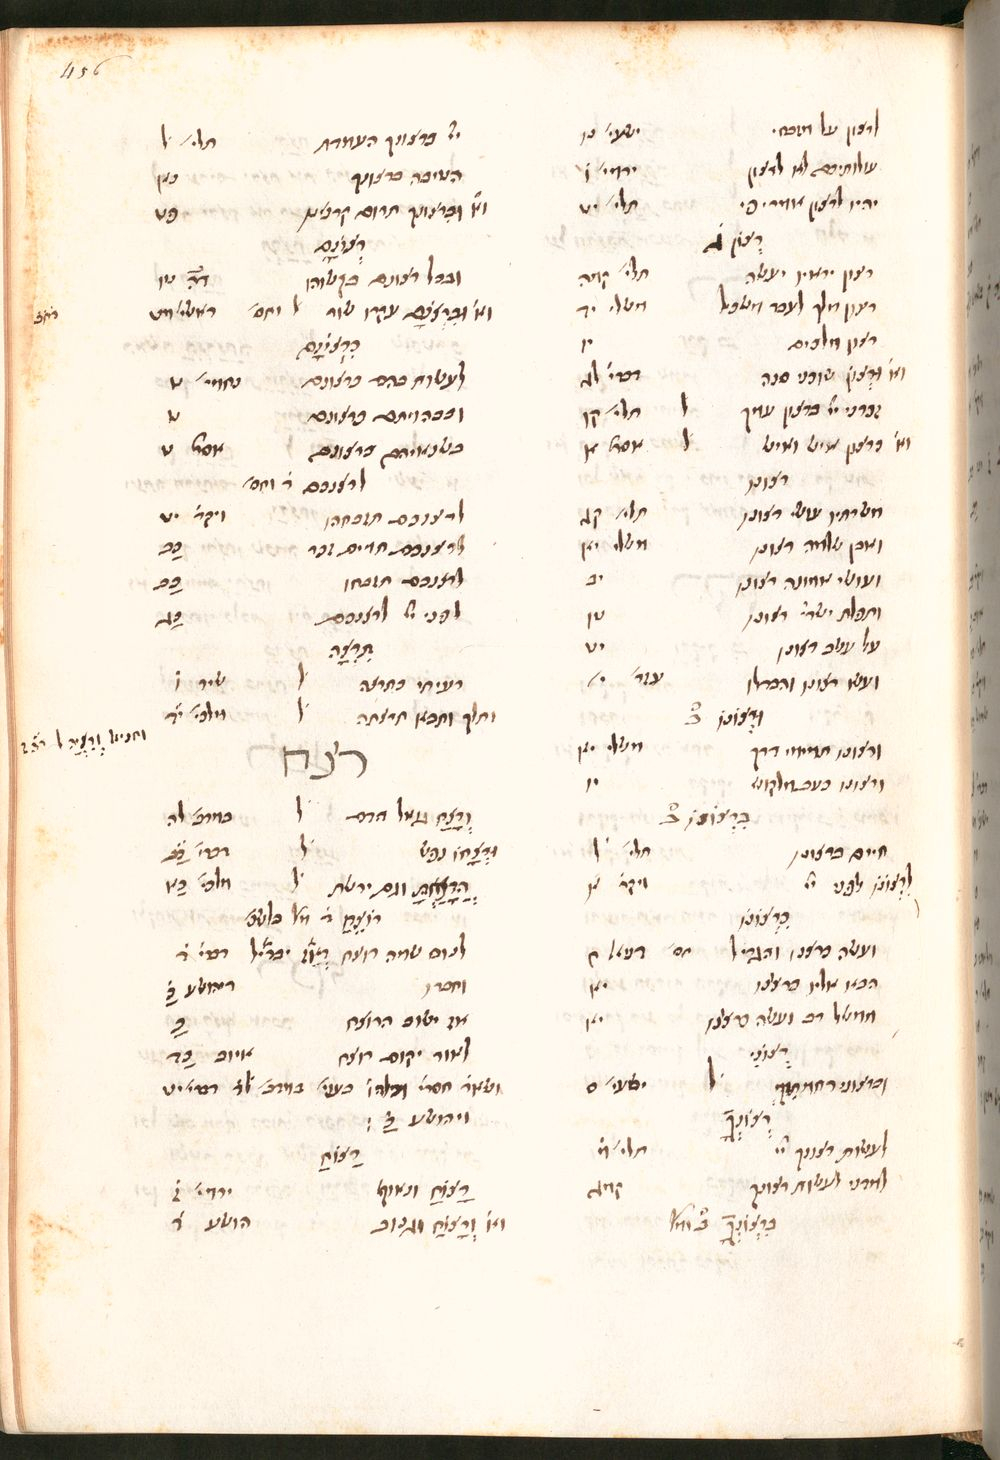 456
לרצון על מזבחי ישעי׳ נו
עולותיכם לא לרצון ירמי׳ ו
יהיו לרצון אמרי פי תלי׳ יט
רְצוֹן ג̇
רצון יראיו יעשה תלי׳ קמה
רצון מלך לעבד משכיל משלי יד
רצון מלכים יו
וא׳ וּרְצוֹן שוכני סנה דברי׳ לג
זכרני יי׳ ברצון עמך ל תלי׳ קו
וא׳ כרצון איש ואיש ל אסתר א
רצונו
משרתיו עושי רצונו תלי׳ קג
ואבן שלמה רצונו משלי יא
ועושי אמונה רצונו יב
ותפלת ישרי׳ רצונו טו
על עשב רצונו יט
ועשו רצונו והבדלו עזר׳ י׳
וּרְצוֹנוֹ ב̇
ורצונו תמימי דרך משלי יא
ורצונו כעב מלקוש יו
בִּרְצוֹנוֹ ב̇
חיים ברצונו תלי׳ ל
לִרְצוֹנוֹ לפני יי׳ ויקר׳ א
כִרְצוֹנוֹ
ועשה כרצנו והגדיל חס׳ דניאל ח
הבא אליו כרצנו יא
ממשל רב ועשה כרצנו יא
רְצוֹנִי
וברצוני רחמתיך ל ישעי׳ ס
רְצוֹנְךָ
לעשות רצונך יי׳ תלי׳ מ
למדני לעשות רצונך קמג
בִּרְצוֹנְךָ
יי׳ ברצונך העמדת תלי׳ ל
היטיבה ברצונך נא
וא׳ וברצונך תרום קרנינו פט
רְצוֹנָם
ובכל רצונם בקשוהו ד״ה טו
וא׳ וּבִרְצֹנָם עקרו שור ל וחס׳ ראשי׳ מט
כִּרְצוֹנָם
לעשות בהם כרצונם נחמי׳ ט
ובבהמתם כרצונם ט
בשנאיהם כרצונם אסתר ט
לרצנכם ד׳ וחס׳
לרצנכם תזבחהו ויקר׳ יט
לרצנכם תמים זכר כב
לרצנכם תזבחו כב
לפני יי׳ לרצנכם כג
תִּרְצָה
רעיתי כתרצה ל שיר ו
ותלך ותבא תרצתה ל מלכי׳ יד
רצח
וְרָצַח גואל הדם ל במדב׳ לה
וּרְצָחוֹ נפש ל דברי׳ כב
הֲרָצַחְתָּ וגם ירשת ל מלכי׳ כא
רוֹצֵחַ
לנוס שמה רוצח דברי׳ ד
וחברו יהושע כ
אז ישוב הרוצח כ
לאור יקום רוצח איוב כד
ויהושע כ׃
רָצוֹחַ
רָצוֹחַ ונאוף ירמי׳ ז
וא׳ וְרָצוֹחַ וגנוב הושע ד